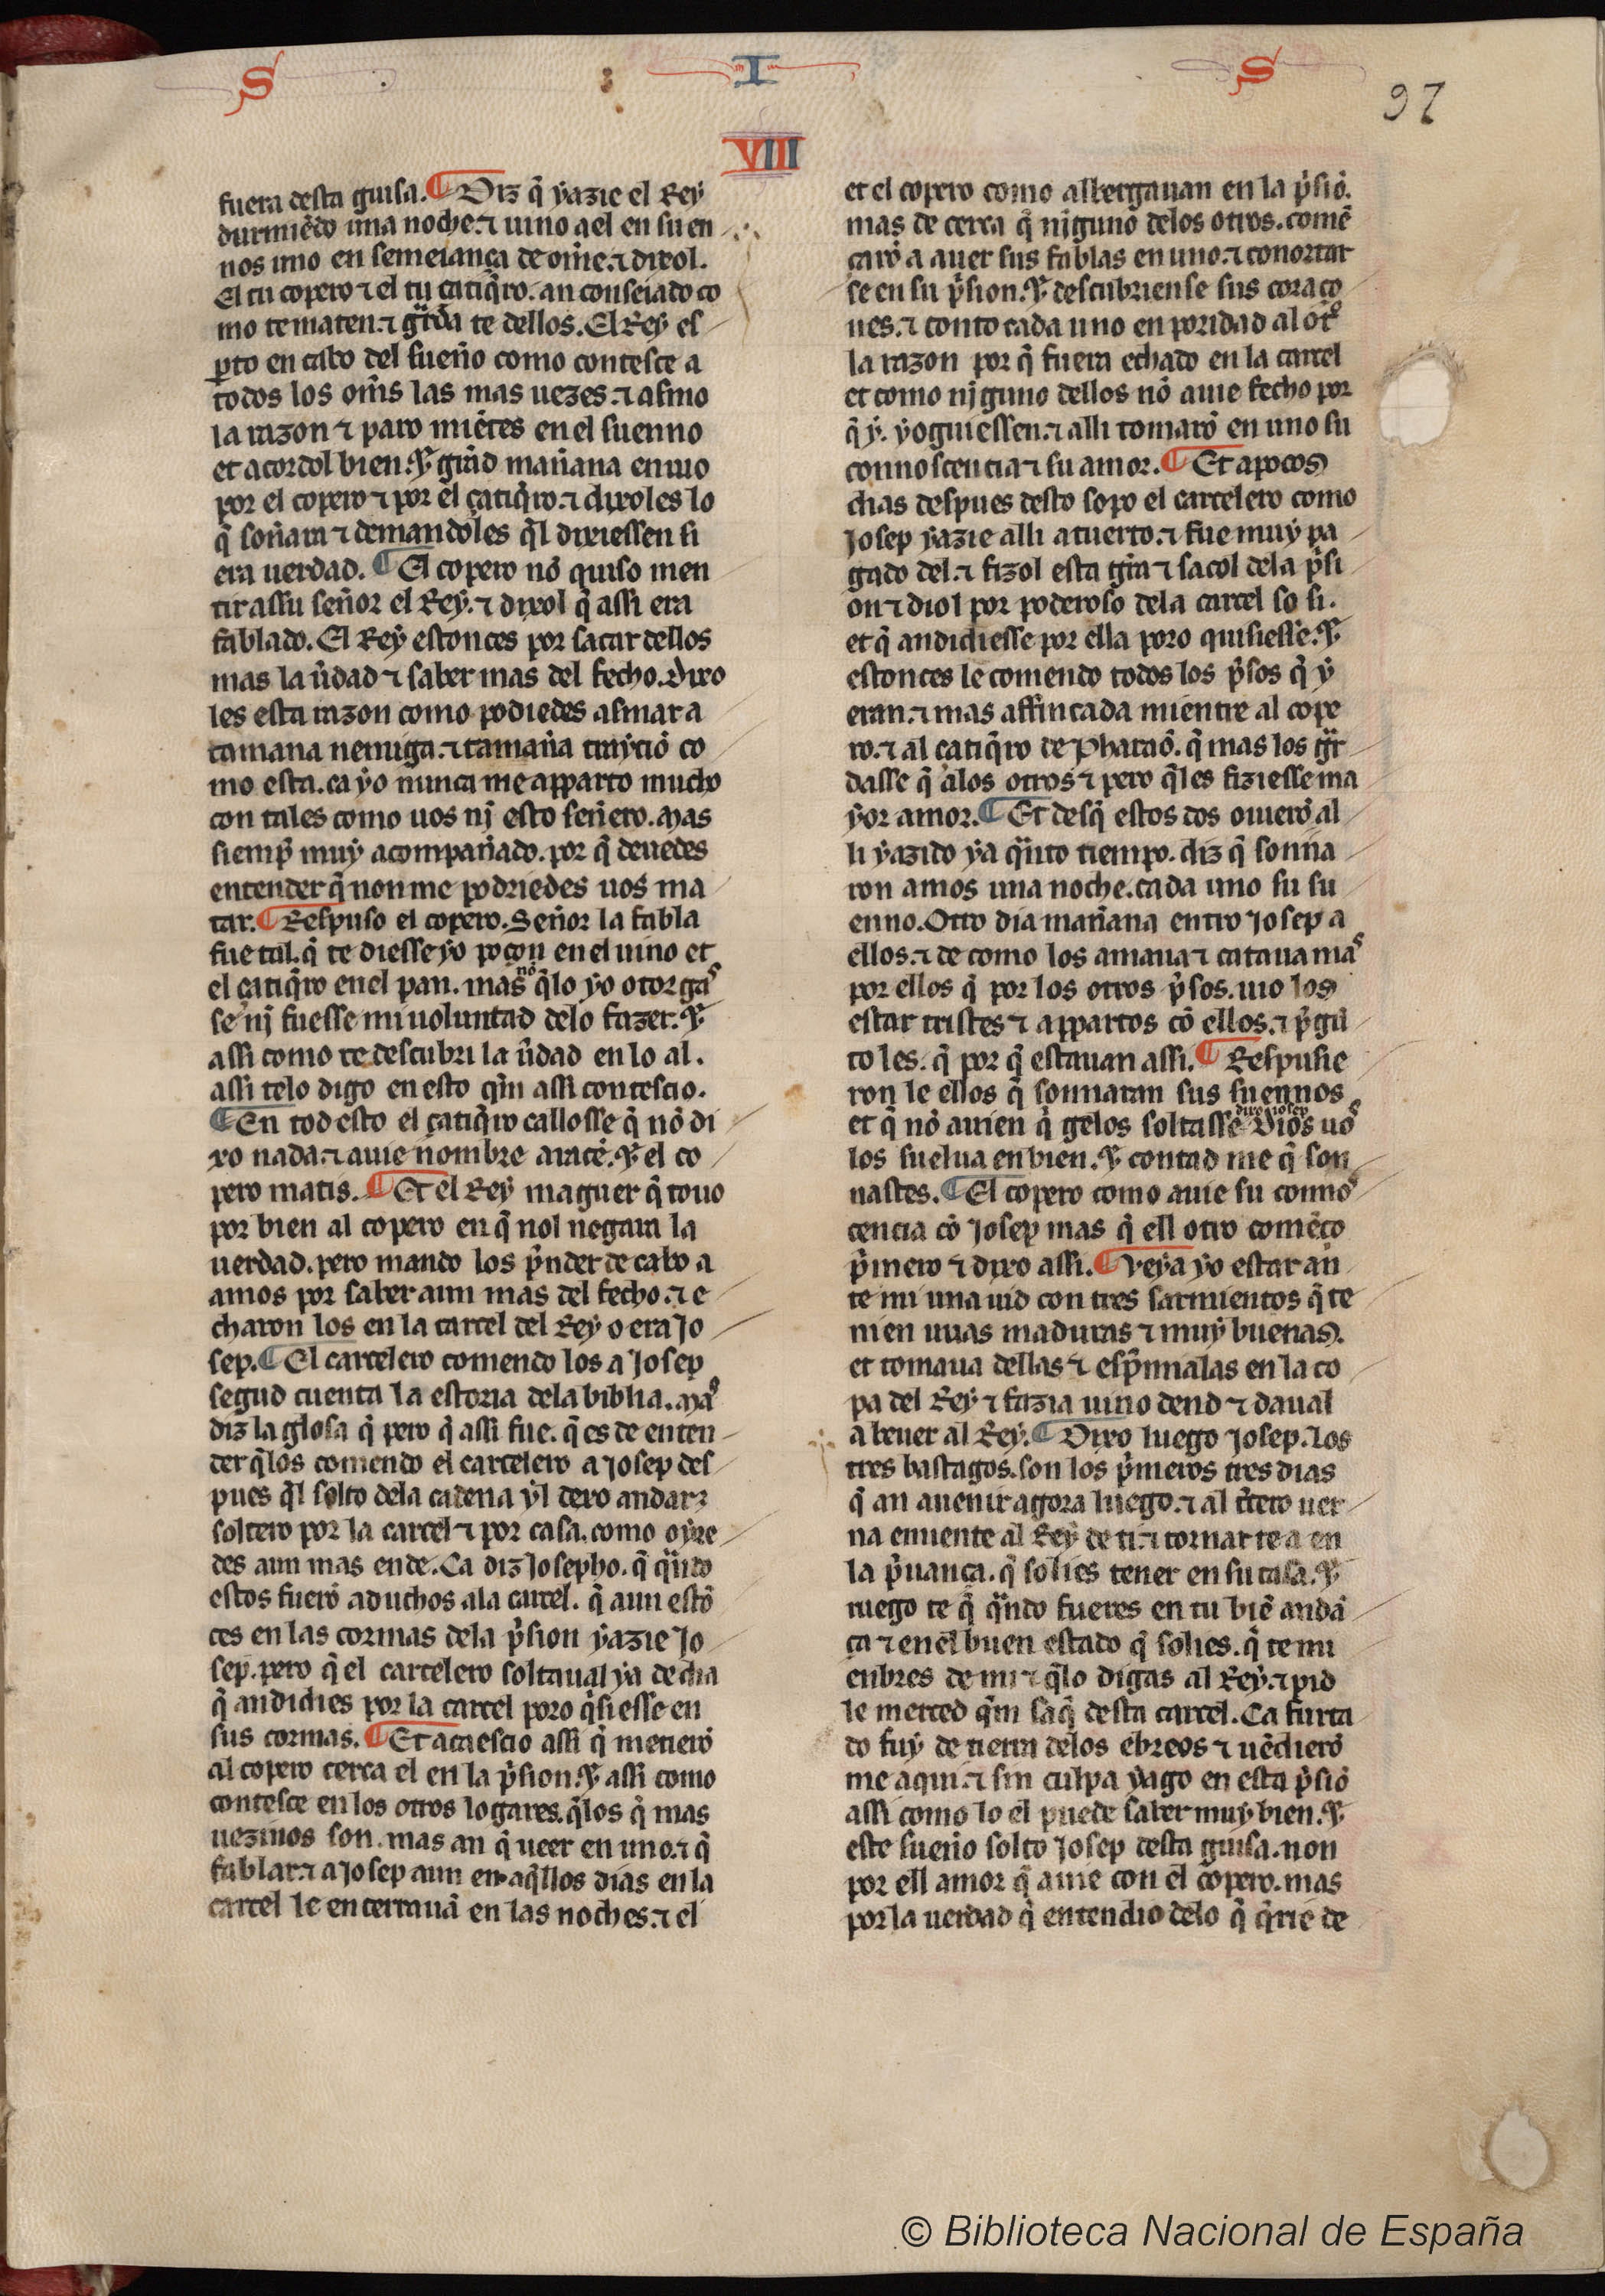 S I S
97
VIII
fuera desta guisa. ¶ Diz q̃ yazie el Rey
durmiẽdo una noche. ⁊ uino a el en suen
nos uno en semeiança de om̃e. ⁊ dixol.
El tu copero ⁊ el tu çatiq̃ro. an conseiado co
mo te maten. ⁊ guarda te dellos. El Rey es
pto en cabo del sueño como contesce a
todos los om̃s las mas uezes. ⁊ asmo
la razon ⁊ paro miẽtes en el suenno
et acordol bien. ⁊ grãd mañana enuio
por el copero ⁊ por el çatiq̃ro. ⁊ dixoles lo
q̃ soñara ⁊ demandoles q̃l dixiessen si
era uerdad. ¶ El copero nõ quiso men
tir assu señor el Rey. ⁊ dixol q̃ assi era
fablado. El Rey estonces por sacar dellos
mas la ũdad ⁊ saber mas del fecho. dixo
les esta razon como podiedes asmar a
tamana nemiga. ⁊ tamaña trayciõ co
mo esta. ca yo nunca me apparto mucho
con tales como uos nj esto señero. Mas
siemp̃ muy acompañado. por q̃ deuedes
entender q̃ non me podriedes uos ma
tar. ¶ Respuso el copero. Señor la fabla
fue tal. q̃ te diesse yo poçon en el uino et
el çatiq̃ro en el pan. mas nõ q̃lo yo otorgas
se nj fuesse mi uoluntad delo fazer. ⁊
assi como te descubri la ũdad en lo al.
assi telo digo en esto q̃m assi contescio.
¶ En tod esto el çatiq̃ro callosse q̃ nõ di
xo nada. ⁊ auie nombre aracẽ. ⁊ el co
pero matis. ¶ Et el Rey maguer q̃ touo
por bien al copero en q̃ nol negara la
uerdad. pero mando los p̃nder de cabo a
amos por saber aun mas del fecho. ⁊ e
charon los en la carcel del Rey o era Jo
sep. ¶ El carcelero comendo los a Josep
segud cuenta la estoria dela biblia. Mas
diz la glosa q̃ pero q̃ assi fue. q̃ es de enten
der q̃los comendo el carcelero a Josep des
pues q̃l solto dela cadena yl dexo andar
soltero por la carcel ⁊ por casa. como oyre
des aun mas ende. Ca diz Josepho. q̃ q̃ndo
estos fuerõ aduchos ala carcel. q̃ aun estõ
ces en las cormas dela p̃sion yazie Jo
sep. pero q̃ el carcelero soltaual ya de dia
q̃ andidies por la carcel poro q̃siesse en
sus cormas. ¶ Et acaescio assi q̃ metierõ
al copero cerca el en la p̃sion. ⁊ assi como
contesce en los otros logares. q̃los q̃ mas
uezinos son. mas an q̃ ueer en uno. ⁊ q̃
fablar. ⁊ a Josep aun en aq̃llos dias en la
carcel le encerrauã en las noches. ⁊ el
et el copero como albergauan en la p̃siõ.
mas de cerca q̃ nĩguno delos otros. comẽ
çarõ a auer sus fablas en uno. ⁊ conortar
se en su p̃sion. ⁊ descubriense sus coraço
nes. ⁊ conto cada uno en poridad al otro
la razon por q̃ fuera echado en la carcel
et como nj guno dellos nõ auie fecho por
q̃ y. yoguiessen. ⁊ alli tomarõ en uno su
connoscencia ⁊ su amor. ¶ Et a pocos
dias despues desto sopo el carcelero como
Josep yazie alli atuerto. ⁊ fue muy pa
gado del. ⁊ fizol esta gr̃a ⁊ sacol dela p̃si
on ⁊ diol por poderoso dela carcel so si.
et q̃ andidiesse por ella poro quisiesse. ⁊
estonces le comendo todos los p̃sos q̃ y
eran. ⁊ mas affincada mientre al cope
ro. ⁊ al çatiq̃ro de Pharaõ. q̃ mas los gr
dasse q̃ alos otros ⁊ pero q̃les fiziesse ma
yor amor. ¶ Et desq̃ estos dos ouierõ al
li yazido ya q̃nto tiempo. diz q̃ sonna
ron amos una noche. cada uno su su
enno. Otro dia mañana entro Josep a
ellos. ⁊ de como los amaua ⁊ cataua mas
por ellos q̃ por los otros p̃sos. uio los
estar tristes ⁊ appartos cõ ellos. ⁊ p̃gũ
to les. q̃ por q̃ estauan assi. ¶ Respusie
ron le ellos q̃ sonnaran sus suennos
et q̃ nõ auien q̃ gelos soltasse. dixo iosep Dios uos
los suelua en bien. ⁊ contad me q̃ son
nastes. ¶ El copero como auie su connos
cencia cõ Josep mas q̃ ell otro comẽço
p̃mero ⁊ dixo assi. ¶ Veya yo estar an
te mi una uid con tres sarmientos q̃ te
nien uuas maduras ⁊ muy buenas.
et tomaua dellas ⁊ esp̃mialas en la co
pa del Rey ⁊ fazia uino dend ⁊ daual
a beuer al Rey. ¶ Dixo luego Josep. los
tres bastagos. son los p̃meros tres dias
q̃ an auenir agora luego. ⁊ al t̃cero uer
na enmente al Rey de ti. ⁊ tornar te a en
la p̃uança. q̃ solies tener en su casa. ⁊
ruego te q̃ q̃ndo fueres en tu biẽ andã
ça ⁊ en el buen estado q̃ solies. q̃ te mi
enbres de mi ⁊ q̃lo digas al Rey. ⁊ pid
le merced q̃m saq̃ desta carcel. Ca furta
do fuy de tierra delos ebreos ⁊ uẽdierõ
me aqui. ⁊ sin culpa yago en esta p̃siõ
assi como lo el puede saber muy bien. ⁊
este sueño solto Josep desta guisa. non
por ell amor q̃ auie con el copero. mas
por la uerdad q̃ entendio delo q̃ q̃rie de
© Biblioteca Nacional de España